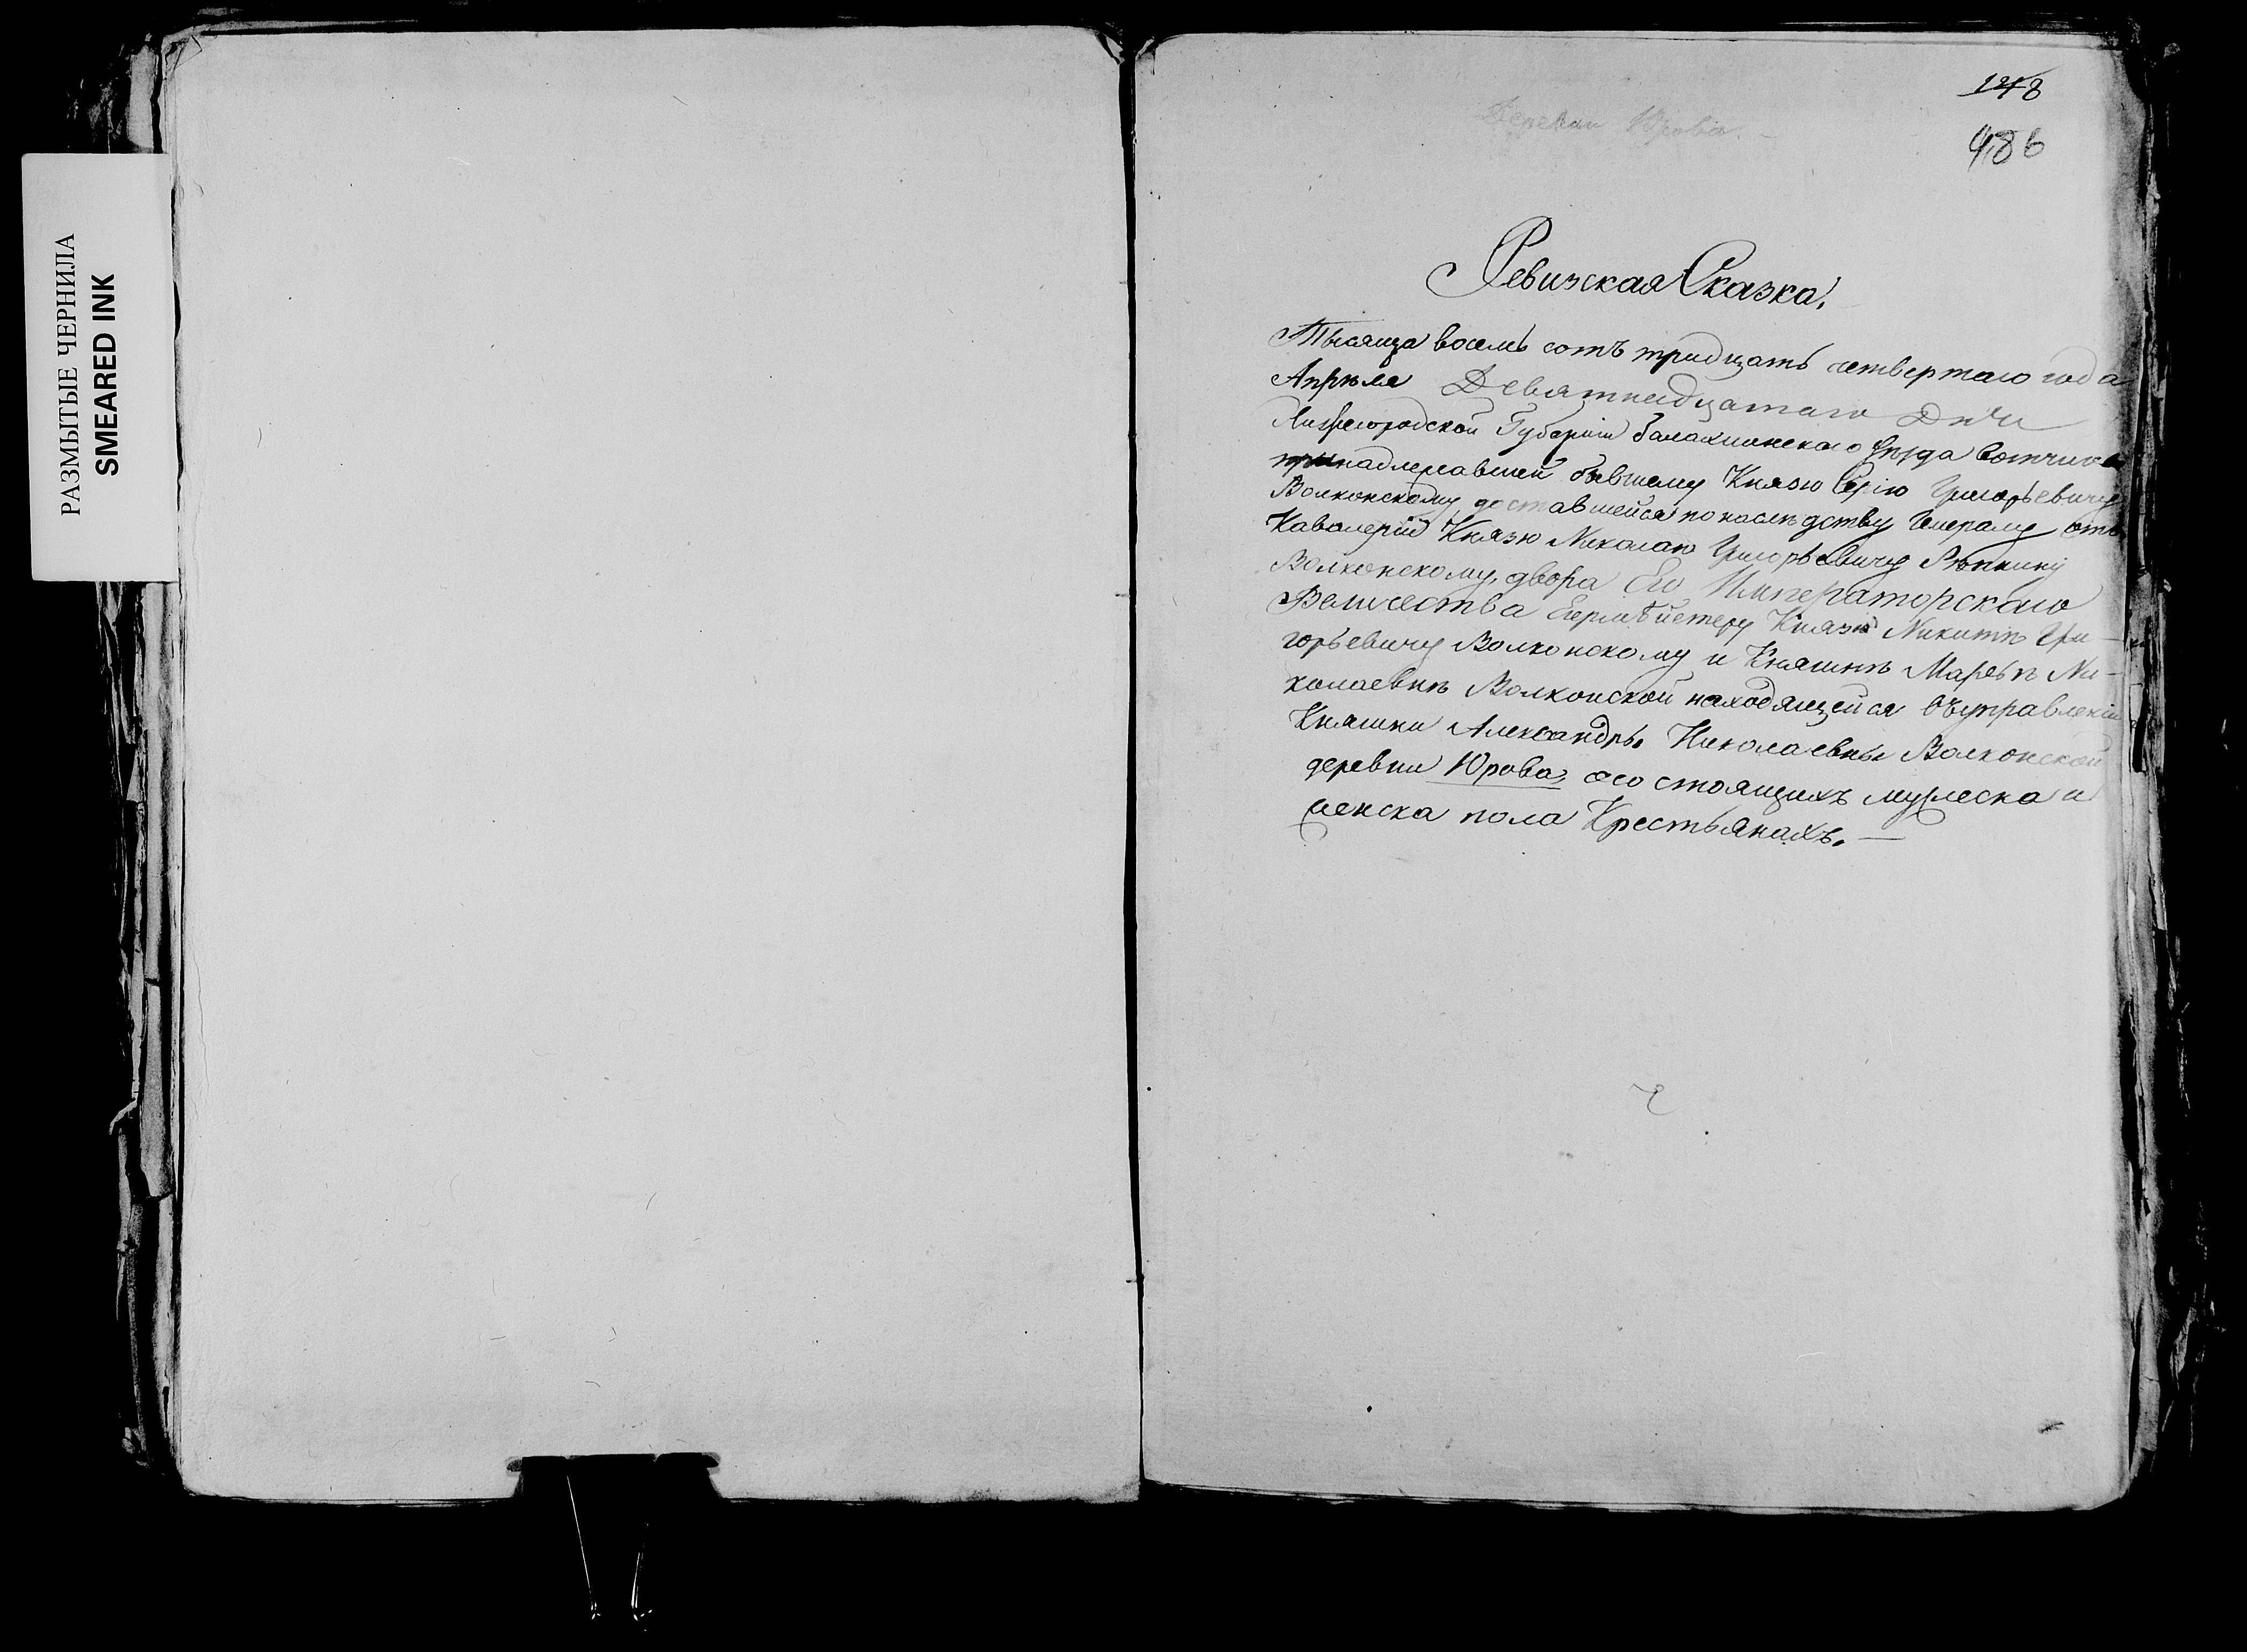 РАЗМЫТЫЕ ЧЕРНИЛА
SMEARED INK
Деревни Юрова.
128
486
Ревизская Сказка,
Тысяща восемь сотъ тридцать четвертаго года
Апреля Девятнадцатаго Дня
Нижегородской Губерніи балахнинскаго уѣзда вотчины
принадлежавшей бывшему Князю Сергію Григорьевичу
Волконскому, доставшейся по наслѣдству Генералу отъ
Кавалеріи Князю Николаю Григорьевичу Рѣпнину
Волконскому, двора Его Императорскаго
Величества Егермѣйстеру Князю Никитѣ Гри-
горьевичу Волконскому и Княгинѣ Марьѣ Ни-
колаевнѣ Волконской находящейся въ управленіи
Княгини Александры Николаевны Волконской
деревни Юрова, о состоящихъ мужеска и
женска пола Крестьянахъ. —